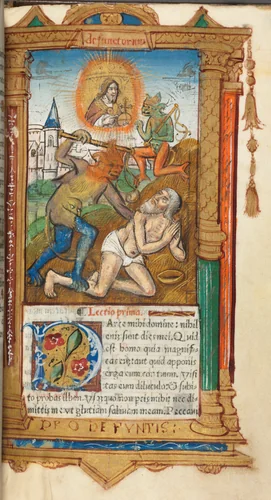 defunctorum
Lectio primo.
Parce mihi domine: nihil
enim sunt dies mei. Quid
est homo quia magnifi-
cas eum: aut quid apponis
erga eum cor: tuum. Visi
tas eum diluculo: & subi
to probas illum. Usquequo non parcis mihi nec di-
mittis me ut glutiam salivam meam. Peccavi
PRO DEFUNTIS: